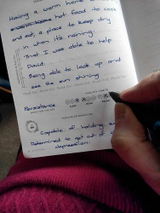 Having a warm home
hot food to cook
and eat, a place to keep dry
in when it's raining.
That I was able to help
David.
Being able to look up and
see the sun shining
Persistence
Capable of holding
Determined to get out of
depression.